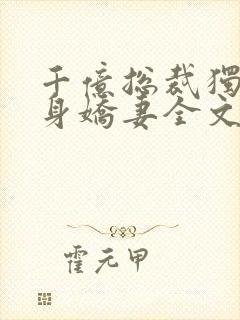 千億総裁獨
身嬌妻全文
霍元甲